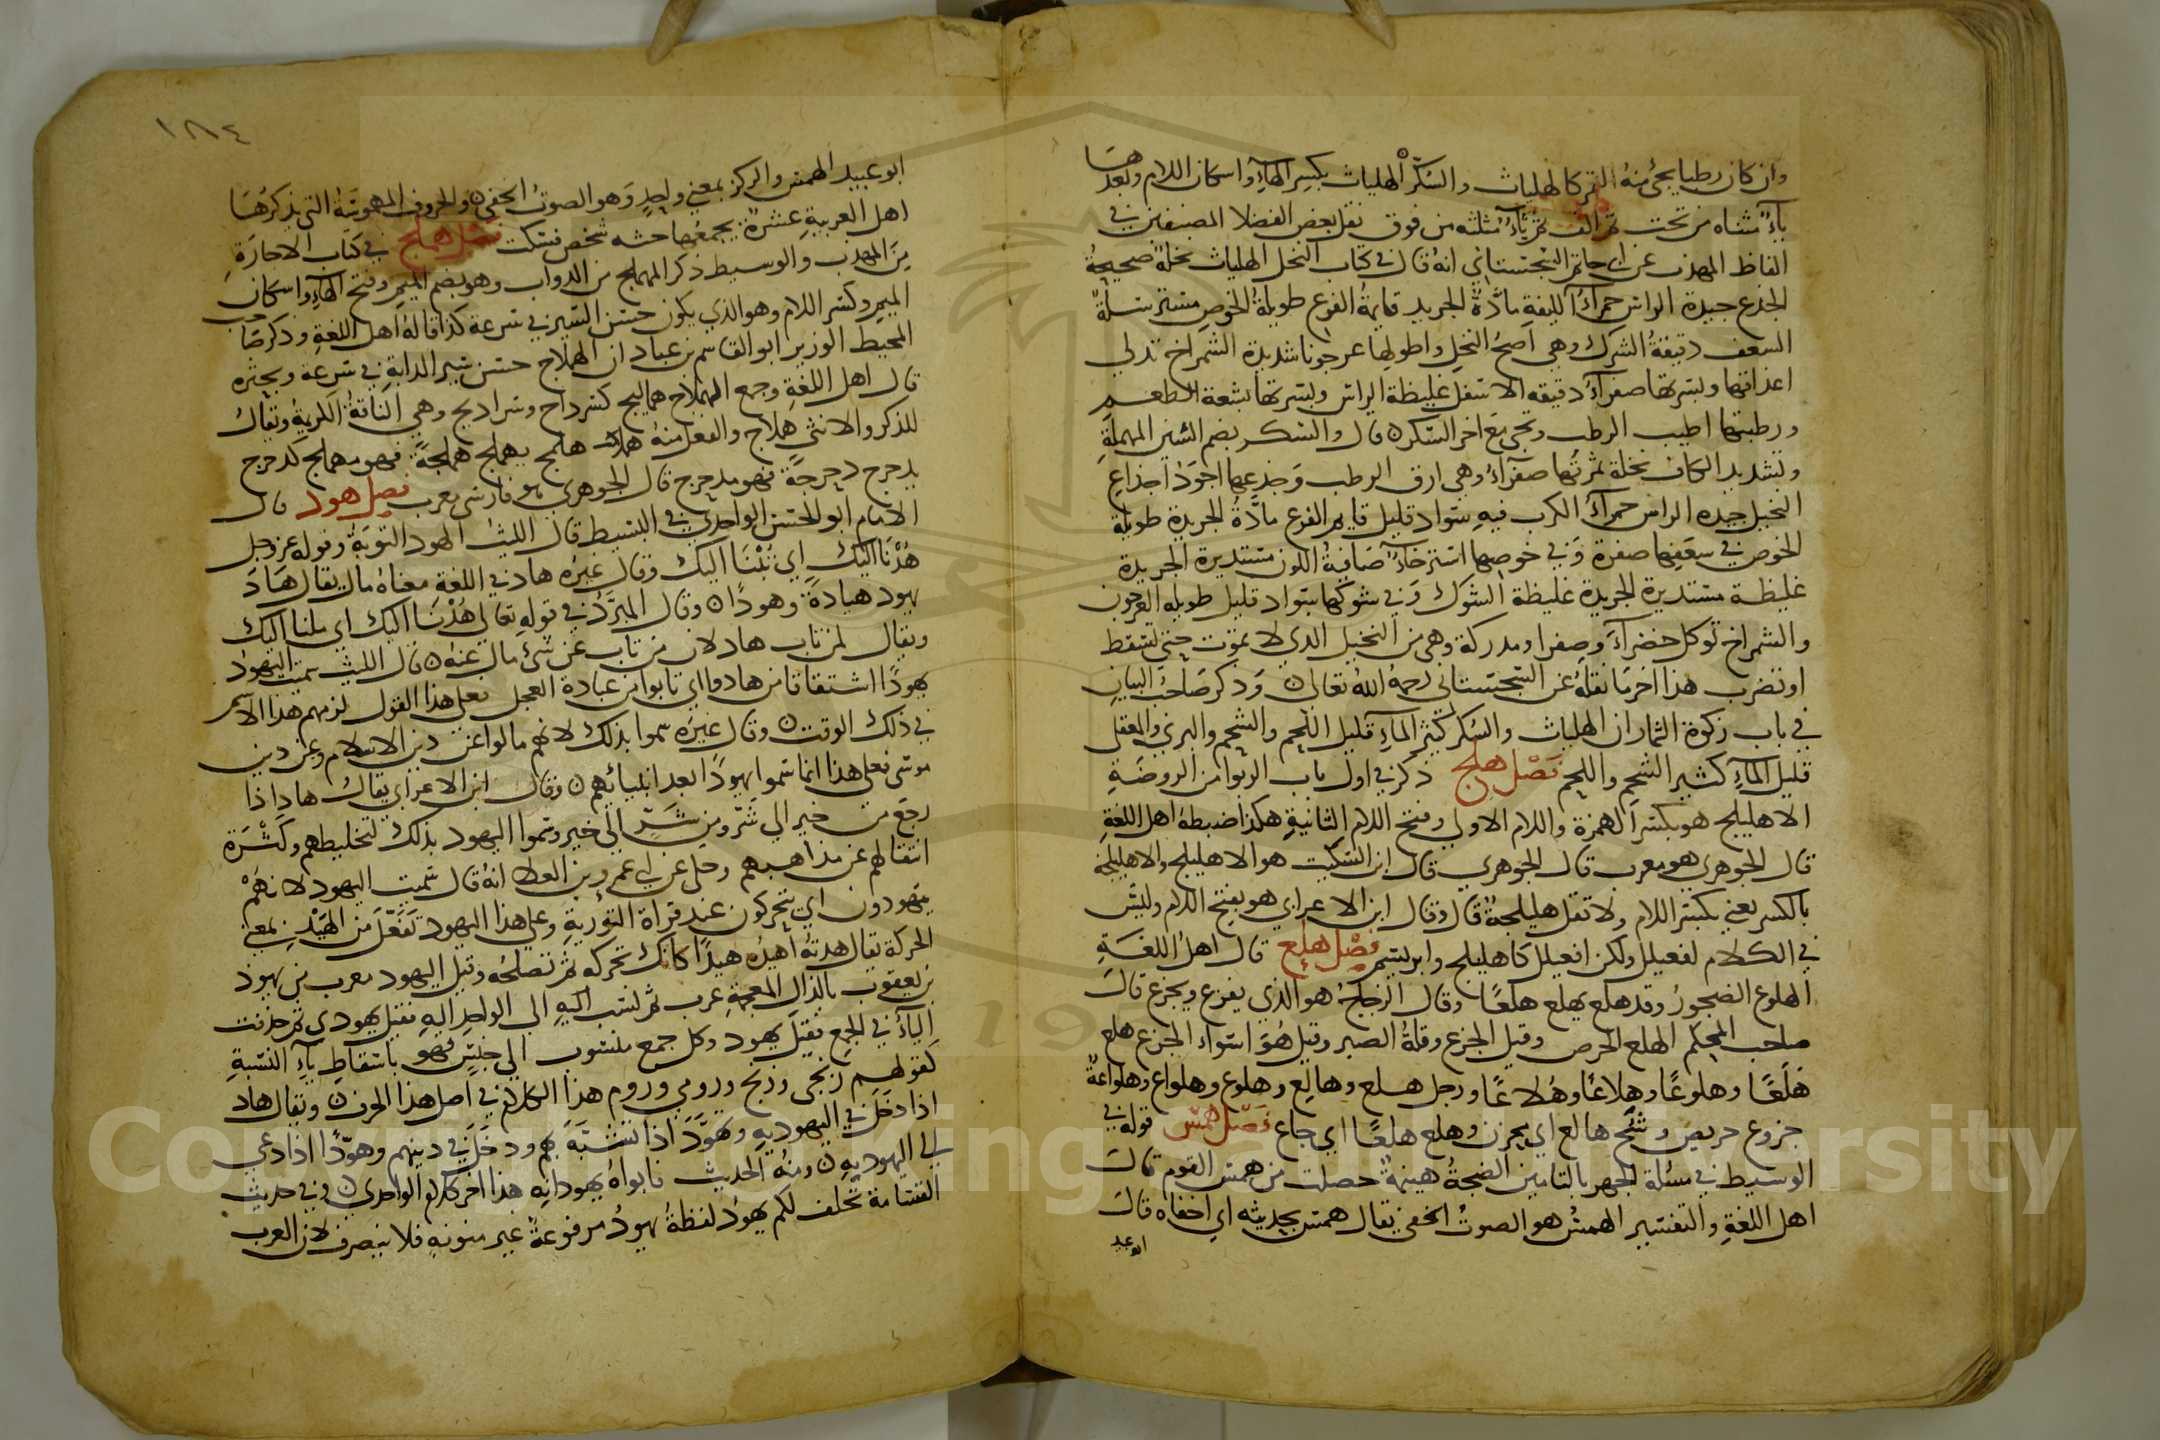 وان كان رطبا يجئ منه التمر كالهلياث والسكر الهلياث بكسر الهاء واسكان اللام وبعدها
ياء مثناه من تحت ثم الف ثم ثاء مثلثه من فوق نقل بعض الفضلا المصنفين في
الفاظ المهذب عن ابي حاتم السجستاني انه قال في كتاب النخل الهلياث نخلة صحيحة
الجذع جيدة الراس حمراء الليفة مادة الجريد قايمة الفرع طويلة الخوص مسترسلة
السعف دقيقة الشوك وهي اصح النخل واطولها عرجونا شديدة الشمراخ تدلي
اعذاقها وبسرتها صفراء دقيقه الاسفل غليظة الراس وبسرتها بشعة الطعم
ورطبتها اطيب الرطب وتجئ مع اخر السكر قال والسكر بضم السين المهملة
وتشديد الكاف نخلة ثمرتها صفراء وهي ارق الرطب وجذعها اجود اجذاع
النخيل جيده الراس حمراء الكرب فيه سواد قليل قايم الفرع مادة الجريدة طويلة
الخوص في سعفها صفرة وفي خوصها استرخاء صافية اللون مستديرة الجريدة
غليظة مستديرة الجريدة غليظة الشوك وفي شوكها سواد قليل طويله العرجون
والشمراخ توكل خضراء وصفرا ومدركة وهي من النخيل الذي لا يموت حتي تسقط
او تضرب هذا اخر ما نقله عن السجستاني رحمه الله تعالى وذكر صاحب البيان
في باب زكوة الثمار ان الهلياث والسكر كثير الماء قليل اللحم والشحم والبرني والمعقل
قليل الماء كثير الشحم واللحم فصل هلج ذكر في اول باب الربوا من الروضة
الاهليلج هو بكسر الهمزة واللام الاولي وفتح اللام الثانية هكذا ضبطه اهل اللغة
قال الجوهري هو معرب قال الجوهري قال ابن السكيت هو الاهليلج والاهليلجة
بالكسر يعني بكسر اللام ولا تقل هليلجة قال وقال ابن الاعرابي هو بفتح اللام وليس
في الكلام افعيلل ولكن افعيلل كاهليلج وابريسم فصل هلع قال اهل اللغة
الهلوع الضجور وقد هلع يهلع هلعا وقال الزجاج هو الذي يفزع ويجزع قال
صاحب المحكم الهلع الحرص وقيل الجزع وقلة الصبر وقيل هو اسواء الجزع هلع
هلعا وهلوعا وهلاعا وهلاعا ورجل هلع وهالع وهلوع وهلواع وهلواعة
جزوع حريص وشح هالع اي يحزن وهلع هلعا اي جاع فصل همس قوله في
الوسيط في مسئلة الجهر بالتامين الضجة هينمة حصلت من همس القوم قال
اهل اللغة والتفسير الهمس هو الصوت الخفي يقال همس بحديثه اي اخفاه قال
ابو عبيد
١٨٤
ابو عبيد الهمس والركز بمعني واحد وهو الصوت الخفي والحروف المهموسة التي يذكرها
اهل العربية عشرة يجمعها حثه شخص فسكت فصل هملج في كتاب الاجارة
من المهذب والوسيط ذكر المهملج من الدواب وهو بضم الميم وفتح الهاء واسكان
الميم وكسر اللام وهو الذي يكون حسن السير في سرعة كذا قاله اهل اللغة وذكر صاحب
المحيط الوزير ابو القاسم بن عباد ان الهملاج حسن سير الدابة في سرعة وبخترة
قال اهل اللغة وجمع الهملاج هماليج كسرداح وسراديح وهي الناقة الكريمة ويقال
للذكر والانثي هملاج والفعل منه هملج يهملج هملجة فهو مهملج كدحرج
يدحرج دحرجة فهو مدحرج قال الجوهري هو فارسي معرب فصل هود قال
الامام ابو الحسن الواحدي في البسيط قال الليث الهود التوبة وقوله عز وجل
هدنا اليك اي تبنا اليك وقال غيره هاد في اللغة معناه مال يقال هاد
يهود هيادة وهودا وقال المبرد في قوله تعالى هدنا اليك اي ملنا اليك
ويقال لمن تاب هاد لان من تاب عن شئ مال عنه قال الليث سميت اليهود
يهودا اشتقاقا من هادوا اي تابوا من عبادة العجل فعلي هذا القول لزمهم هذا الاسم
في ذلك الوقت وقال غيره سموا بذلك لانهم مالوا عن دين الاسلام وعن دين
موسى فعلي هذا انما سموا يهودا بعد انبيائهم وقال ابن الاعرابي يقال هاد اذا
رجع من خير الي شر ومن شر الي خير وسموا اليهود بذلك لتخليطهم وكثرة
انتقالهم عن مذاهبهم وحكى عن ابي عمرو بن العلا انه قال سميت اليهود لانهم
يتهودون اي يتحركون عند قراة التورية وعلي هذا اليهود تفعل من الهيد بمعني
الحركة يقال هدته اهيده هيدا كانك تحركه ثم تصلحه وقيل اليهود معرب من يهوذ
بن يعقوب بالذال المعجمة عرب ثم نسب اليه الى الواحد اليه فقيل يهودي ثم حذفت
الياء في الجمع فقيل يهود وكل جمع منسوب الي جنس فهو باسقاط ياء النسبة
كقولهم زنجي وزنج ورومي وروم هذا الكلام في اصل هذا الحرف ويقال هاد
اذا دخل في اليهوديه وتهود اذا تشبه بهم ودخل في دينهم وهود اذا دعي
الي اليهوديه ومنه الحديث فابواه يهودانه هذا اخر كلام الواحدي وفي حديث
القسامة تحلف لكم يهود لفظة يهود مرفوعة غير منونه فلا ينصرف لان العرب
Copyright © King Saud University